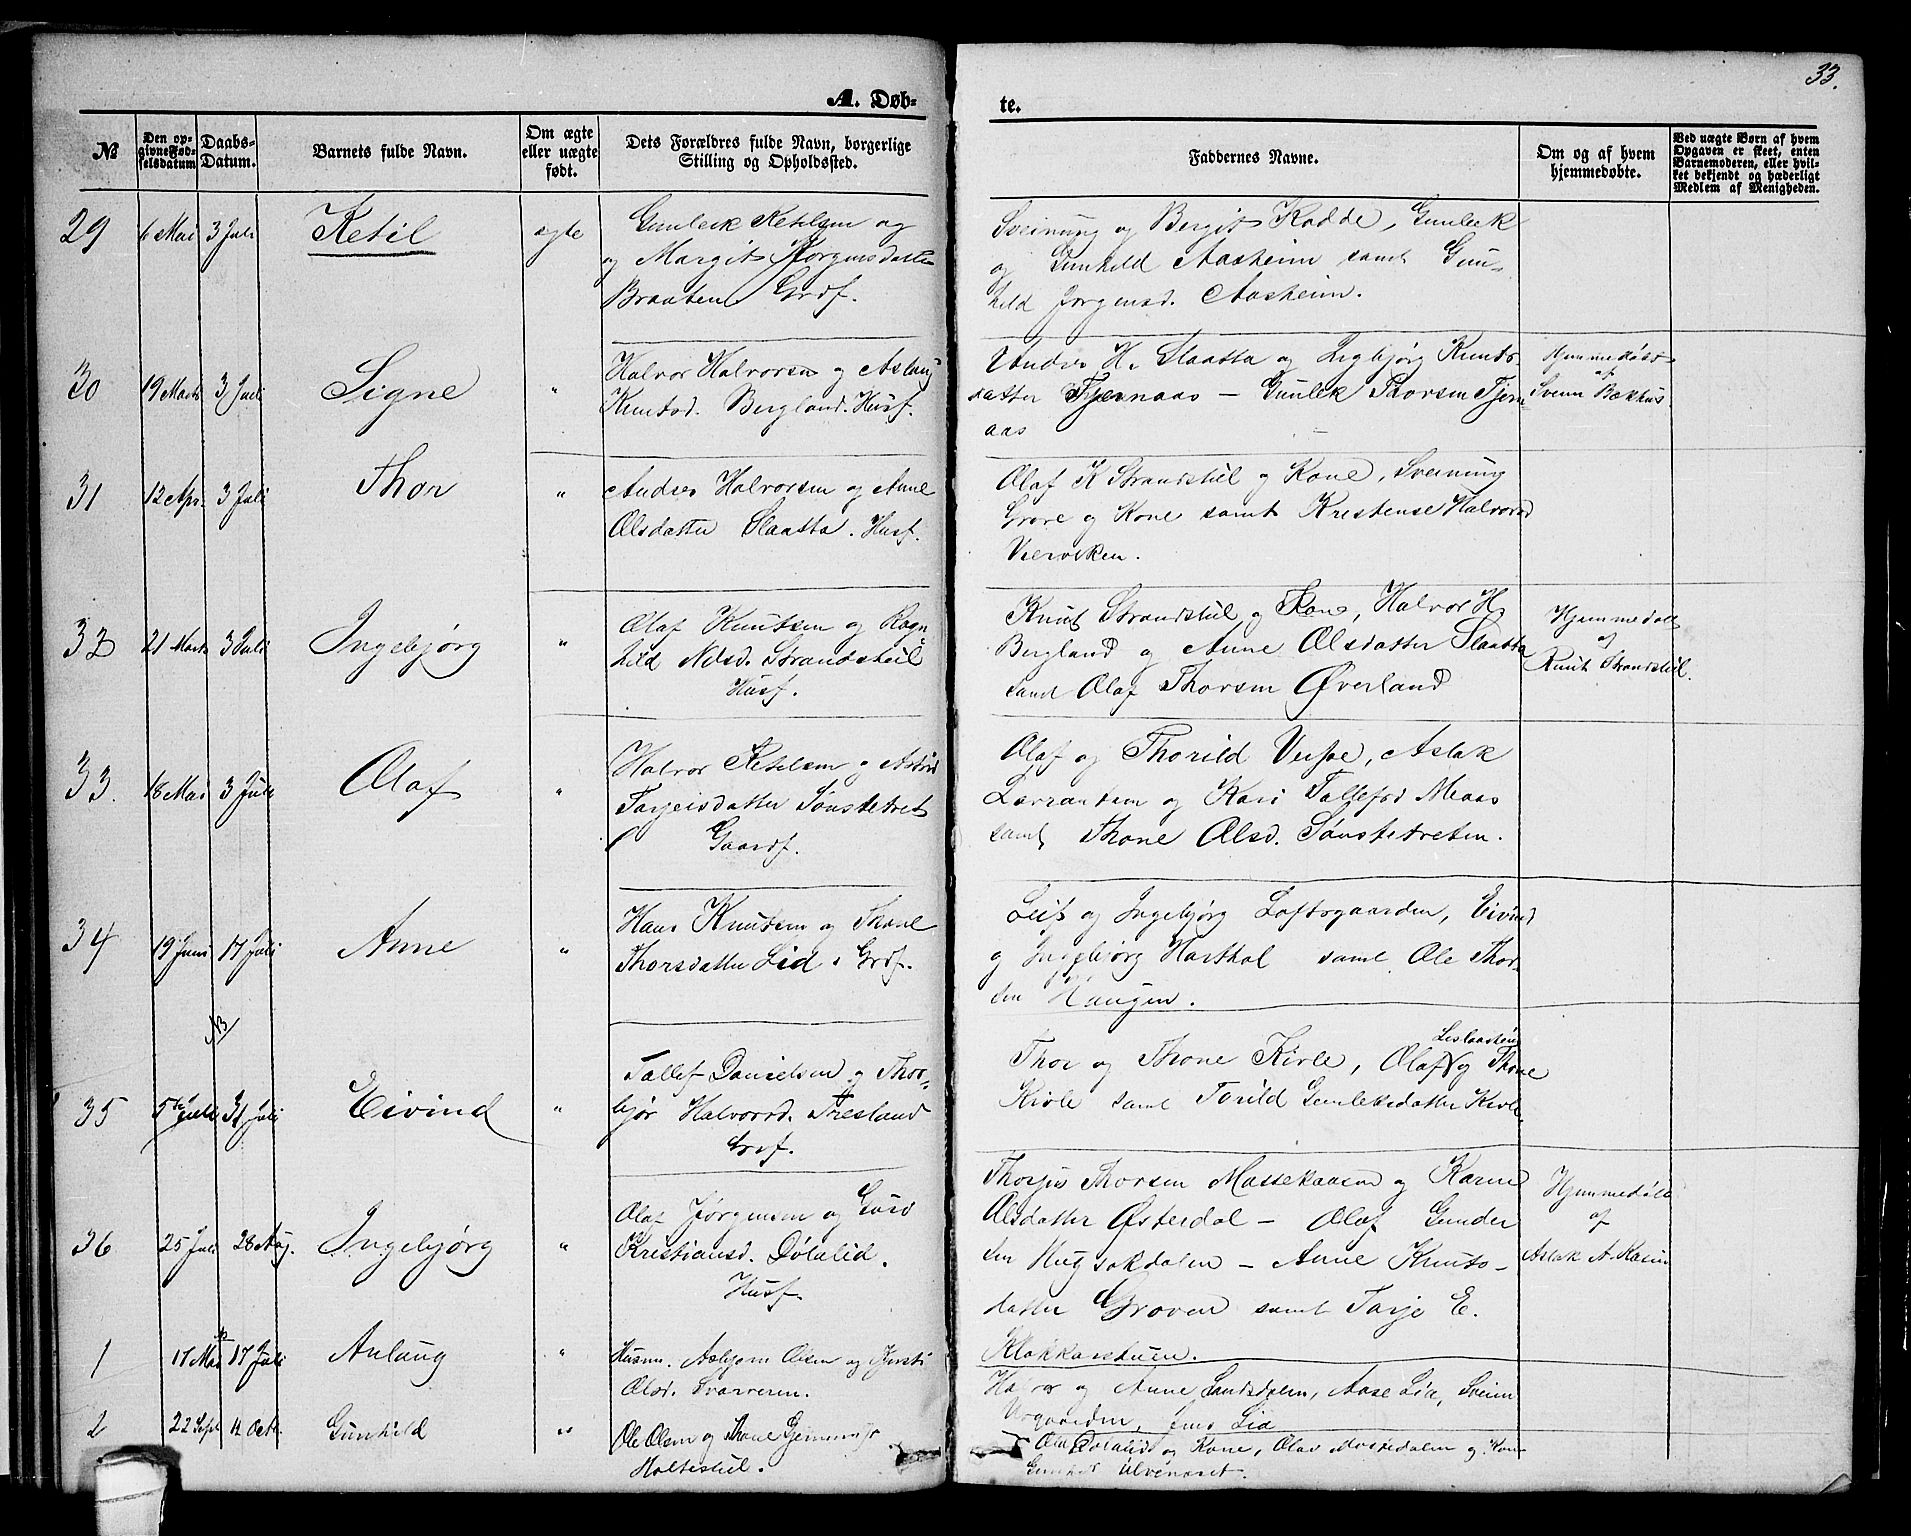 33.
A. Døb-
te.
№
Den op-
givne Fød-
selsdatum
Daabs-
Datum.
Barnets fulde Navn.
Om ægte
eller uægte
født.
Dets Forældres fulde Navn, borgerlige
Stilling og Opholdssted.
Faddernes Navne.
Om og af hvem
hjemmedøbte.
Ved uægte Børn af hvem
Opgaven er skeet, enten
Barnemoderen, eller hvil-
ket bekjendt og hæderligt
Medlem af Menigheden.
29
6 Mai
3 Juli
Ketil
ægte
Gunleik Ketilsen og
og Margit Jørgensdatter
Braaten. Grdf.
Sveinung og Bergit Kodde, Gunleik
og Gunhild Aasheim samt Gun-
hild Jørgensd. Aasheim.
30
19 Marts
3 Juli
Signe
"
Halvor Halvorsen og Aslaug
Knutsd. Bergland. Husf.
Andres H. Slaatta og Ingbjørg Knuts-
datter Tjønnaas – Gunlek Thorsen Tjønn
aas
Hjemmedøbt
af
Svenn Bækhus
31
12 Apr.
3 Juli
Thor
"
Andres Halvorsen og Anne
Olsdatter Slaatta. Husf.
Olaf K Strandstil og Kone, Sveinung
Grave og Kone samt Kristense Halvorsd
Vierviken.
32
21 Marts
3 Juli
Ingebjørg
"
Olaf Knutsen og Ragn
hild Nilsd. Strandstiil
Husf.
Knut Strandstiil og Kone, Halvor H.
Bergland og Anne Olsdatter Slaatta
samt Olaf Thorsen Øverland
Hjemmedøbt
af
Knut Strandstiil.
33.
18 Mai
3 Juli
Olaf
"
Halvor Ketilsen og Astrid
Tarjeisdatter Sønstetvet
Gaardf.
Olaf og Thorild Versto, Aslak
og Kari Tallefsd Meaas
samt Thone Olsd. Sønstetveten.
34
19 Juni
17 Juli
Anne
"
Hans Knutsen og Thone
Thorsdatter Lid. Grdf.
Leif og Ingebjørg Loftsgaarden, Eivind
og Ingebjørg Harthol samt Ole Thor-
sen Haugen.
35
5te Juli
31 Juli
Eivind
"
Tallef Danielsen og Thor-
bjør Halvorsd. Tresland
Grdf.
Thor og Thone Kivle, Olaf og Thone
Kivle samt Torild Gunleksdatter Kivle.
36
25 Juli
28 Aug.
Ingebjørg
"
Olaf Jørgensen og Guro
Kristiansd. Dölalid.
Husf
Thorjus Thorsen Massekaasen og Karine
Olsdatter Østerdal – Olaf Gunder
sen – Anne Knuts-
datter Groven samt Tarje E.
Klokkarstuen.
Hjemmedøbt
af
Aslak A. Kasin
1
17 Mai
17 Juli
Anlaug
"
Husm. Asbjørn Olsen og Kirsti
Olsd. Svarveren.
Halvor og Anne Sandsdalen, Aase Lia, Svein
Urgaarden, Jens Lia
2
22 Sept
4 Octb.
Gunhild
"
Ole Olsen og Thone
Holtestiil.
Olaf Dølalid og Kone, Olav Mossedalen og Kone
Gunhild Ulvenæset.